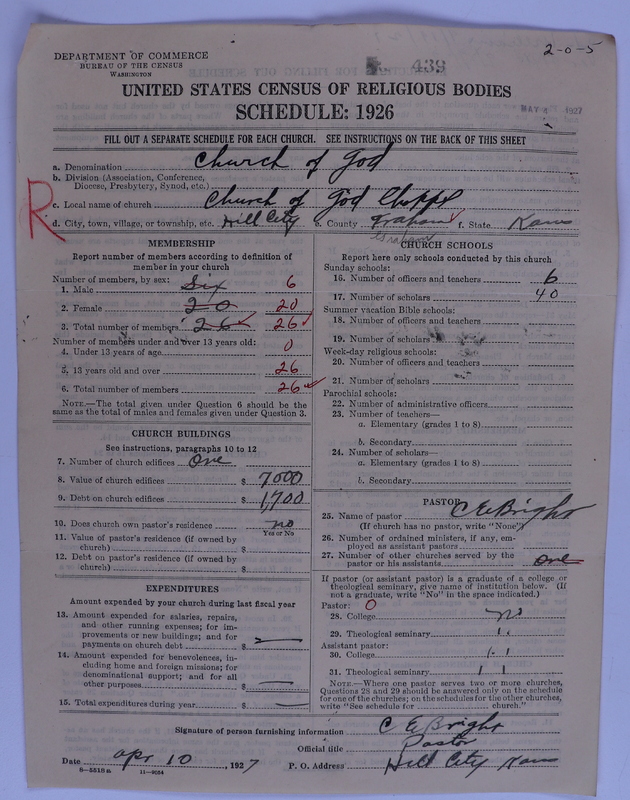 2-0-5
DEPARTMENT OF COMMERCE
BUREAU OF THE CENSUS
WASHINGTON
439
UNITED STATES CENSUS OF RELIGIOUS BODIES
SCHEDULE: 1926
MAY 4 1927
FILL OUT A SEPARATE SCHEDULE FOR EACH CHURCH. SEE INSTRUCTIONS ON THE BACK OF THIS SHEET
R
a. Denomination Church of God
b. Division (Association, Conference,
Diocese, Presbytery, Synod, etc.)
c. Local name of church Church of God Chappl
d. City, town, village, or township, etc. Hill City e. County Graham f. State Kans
Graham
MEMBERSHIP
Report number of members according to definition of
member in your church
Number of members, by sex:
1. Male Six 6
2. Female 20 20
3. Total number of members 26 26
Number of members under and over 13 years old:
4. Under 13 years of age 0
5. 13 years old and over 26
6. Total number of members 26
NOTE.—The total given under Question 6 should be the
same as the total of males and females given under Question 3.
CHURCH BUILDINGS
See instructions, paragraphs 10 to 12
7. Number of church edifices One
8. Value of church edifices $ 7000
9. Debt on church edifices $ 1,700
10. Does church own pastor's residence no
Yes or No
11. Value of pastor's residence (if owned by
church) $
12. Debt on pastor's residence (if owned by
church) $
EXPENDITURES
Amount expended by your church during last fiscal year
13. Amount expended for salaries, repairs,
and other running expenses; for im-
provements or new buildings; and for
payments on church debt $
14. Amount expended for benevolences, in-
cluding home and foreign missions; for
denominational support; and for all
other purposes $
15. Total expenditures during year $
CHURCH SCHOOLS
Report here only schools conducted by this church
Sunday schools:
16. Number of officers and teachers 6
17. Number of scholars 40
Summer vacation Bible schools:
18. Number of officers and teachers
19. Number of scholars
Week-day religious schools:
20. Number of officers and teachers
21. Number of scholars
Parochial schools:
22. Number of administrative officers
23. Number of teachers—
a. Elementary (grades 1 to 8)
b. Secondary
24. Number of scholars—
a. Elementary (grades 1 to 8)
b. Secondary
PASTOR
25. Name of pastor C E Bright
(If church has no pastor, write "None")
26. Number of ordained ministers, if any, em-
ployed as assistant pastors
27. Number of other churches served by the
pastor or his assistants one
If pastor (or assistant pastor) is a graduate of a college or
theological seminary, give name of institution below. (If
not a graduate, write "No" in the space indicated.)
Pastor: 0
28. College No
29. Theological seminary
Assistant pastor:
30. College
31. Theological seminary
NOTE.—Where one pastor serves two or more churches,
Questions 28 and 29 should be answered only on the schedule
of one of the churches; on the schedules for the other churches,
write "See schedule for church."
Signature of person furnishing information C E Bright
Official title Pastor
Date Apr 10, 1927 P. O. Address Hill City Kans
8—5518a 11—9054